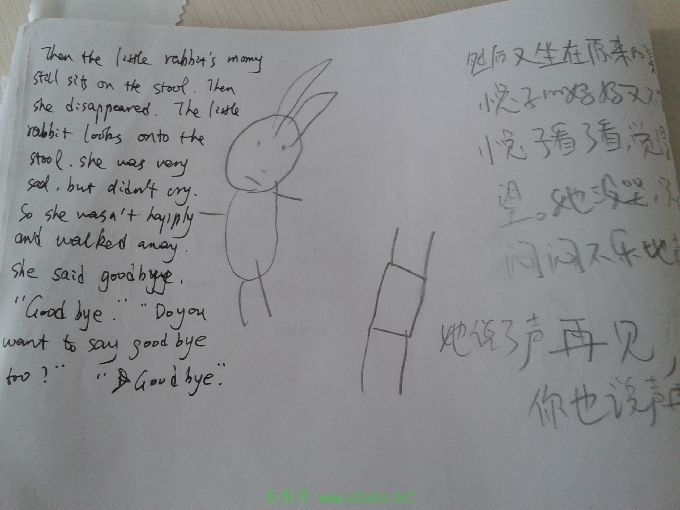 Then the little rabbit's momy
still sits on the stool. Then
she disappeared. The little
rabbit looks onto the
stool. she was very
sad. but didn't cry.
So she wasn't happily
and walked away.
she said goodbye.
"Good bye." "Do you
want to say good bye
too?" "Good bye."
然后又坐在原来的
悦子的妈妈又不
悦子看了看,觉
望。她没哭,
闷闷不乐地
她说了声再见,
你也说声再